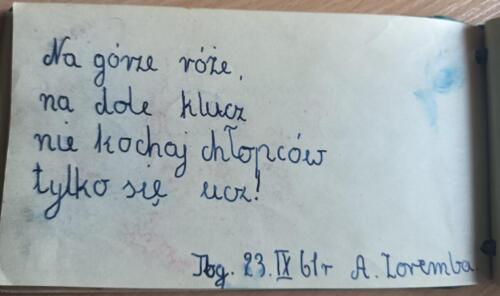 Na górze róże,
na dole klucz
nie kochaj chłopców
tylko się ucz!
Tbg. 23.IX 61r A. Zaremba